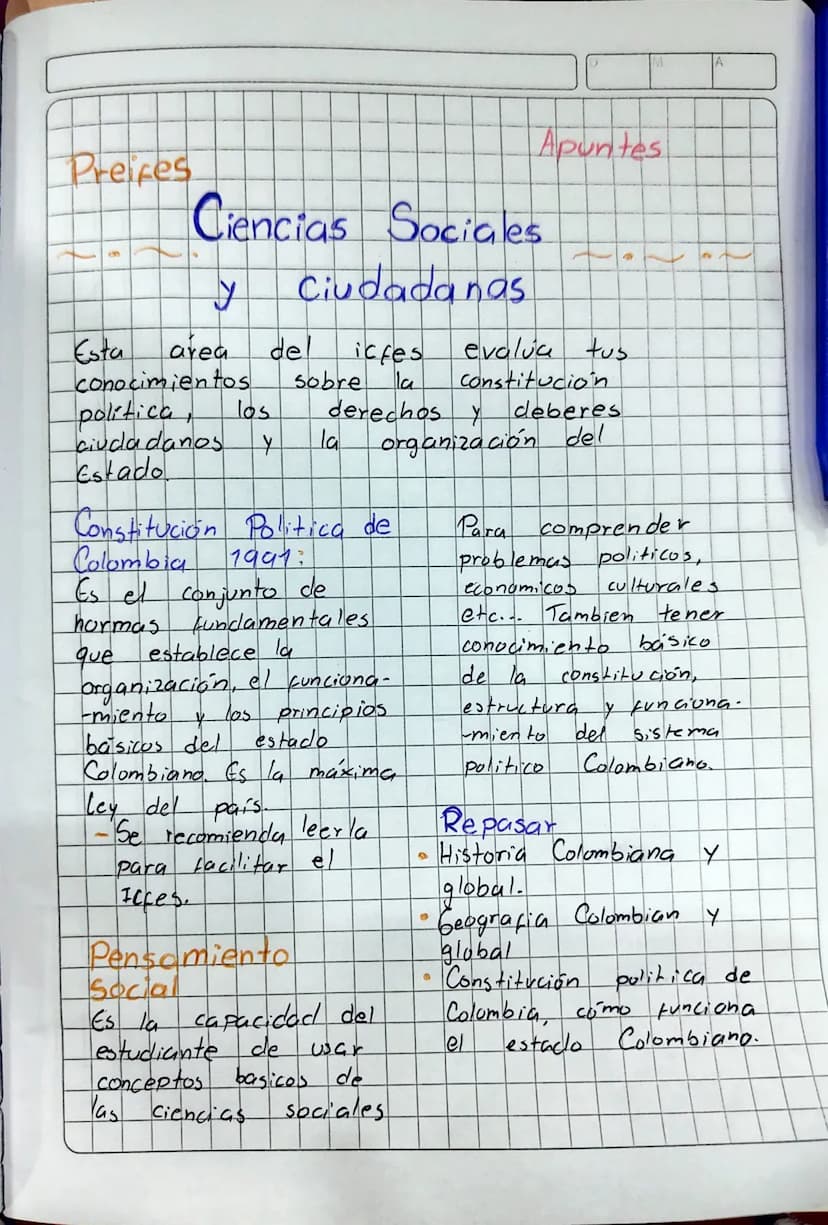 D M A
Apuntes
Preicfes
Ciencias Sociales
y ciudadanas
Esta área del icfes evalúa tus
conocimientos sobre la constitución
política, los derechos y deberes
ciudadanos y la organización del
Estado.
Constitución Politica de
Colombia 1991:
Es el conjunto de
normas fundamentales
que establece la
organización, el funciona-
-miento y los principios
básicos del estado
Colombiano. Es la máxima
Ley del país.
- Se recomienda leerla
para facilitar el
Icfes.
Pensamiento
Social
Es la capacidad del
estudiante de usar
conceptos basicos de
las ciencias sociales
Para comprender
problemas politicos,
economicos culturales
etc... Tambien tener
conocimiento básico
de la constitución,
estructura y funciona-
-miento del sistema
politico Colombiano.
Repasar
• Historia Colombiana y
global.
• Geografia Colombian y
global
• Constitución politica de
Colombia, cómo funciona
el estado Colombiano.